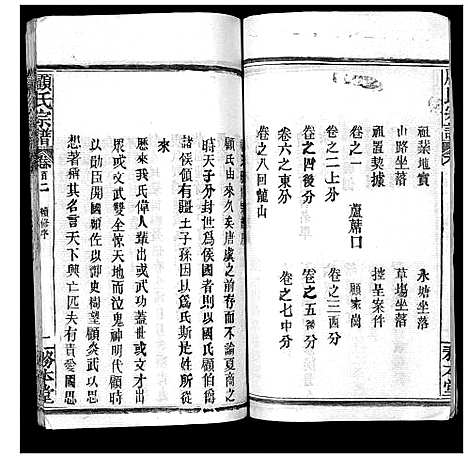 祖業地實 永塘坐落
山路坐落 草塲坐落
祖置契據 控呈案件
卷之一 蘆蓆口
卷之二上分 卷之三西分 顧家崗
卷之四後分 卷之五種分
卷六之東分 卷之七中分
卷之八回龍山
務本堂
顧氏由來久矣唐虞之前存而不論夏商之
時天子分封世爲侯國者則以國氏顧伯
諸侯領有疆土子孫因以爲氏斯姓之所從
來
歷來我氏偉人輩出或以武功蓋世或以文才出
衆或文武雙全惊天地而泣鬼神明代顧時
以勛臣開國顧佐以御史樹望顧炎武以思
想著稱其名言天下興亡匹夫有責愛國思
顧氏宗譜 卷首二 續修序 二 務本堂